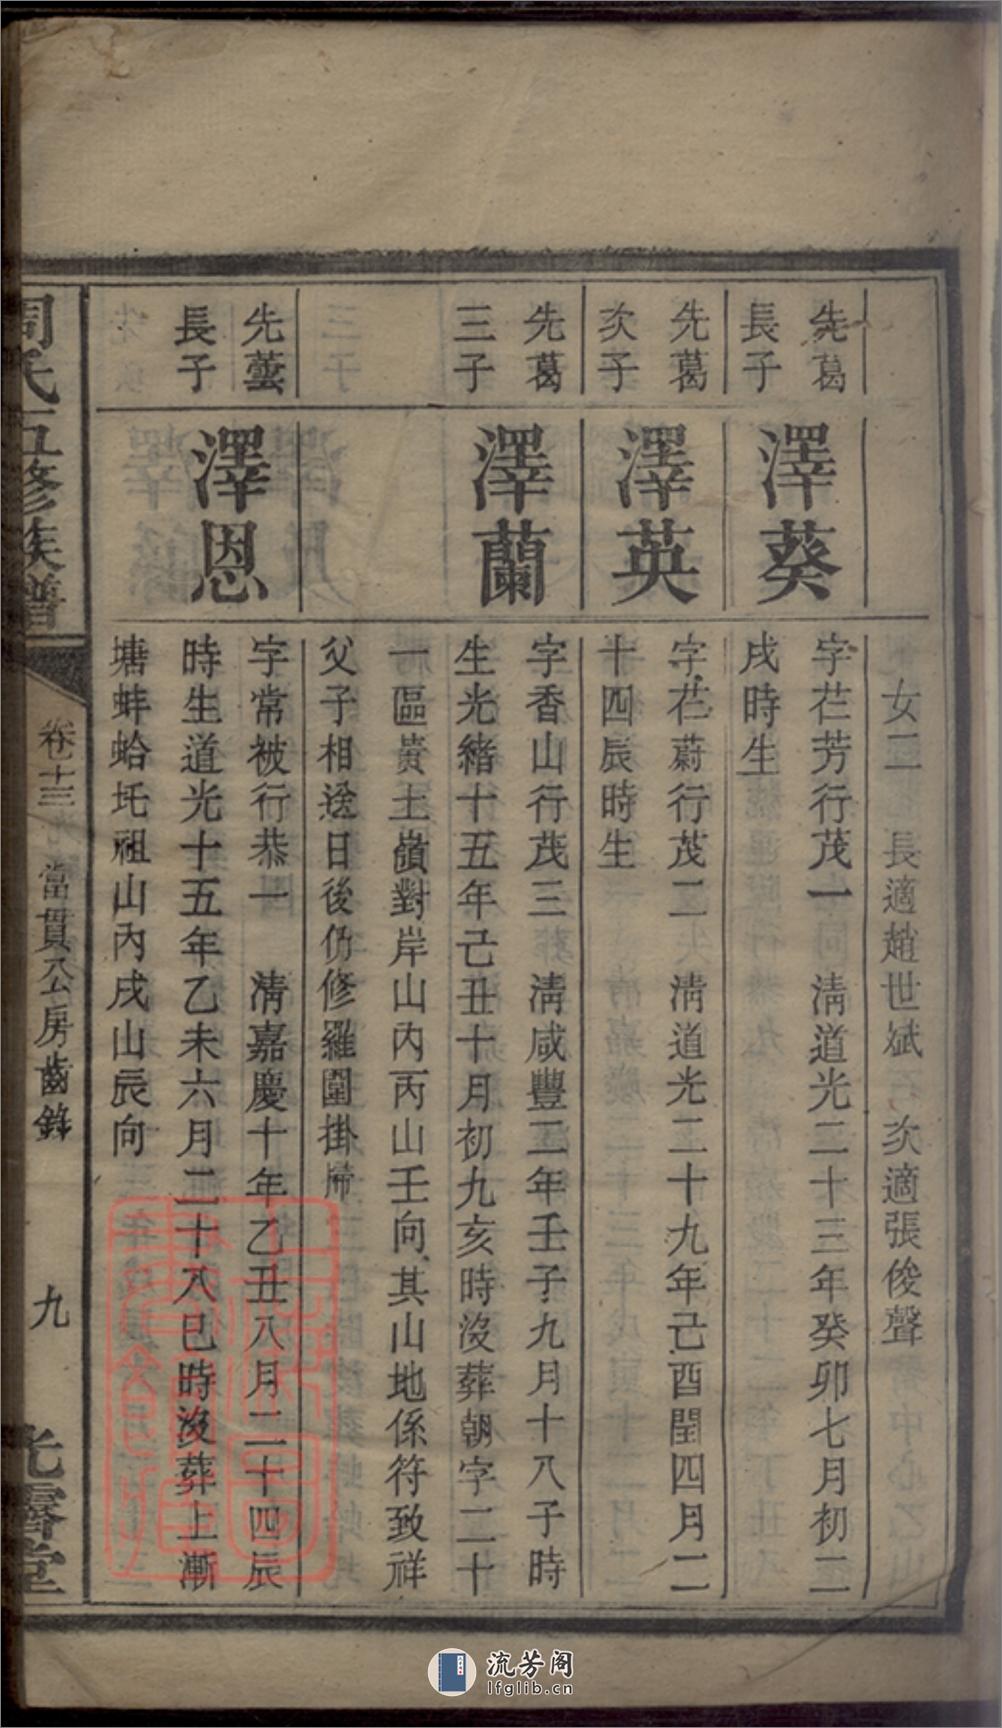 女二 長適趙世斌 次適張俊聲
先葛
長子
澤葵
字芢芳行茂一 淸道光二十三年癸卯七月初二
戌時生
先葛
次子
澤英
字芢蔚行茂二 淸道光二十九年己酉閏四月二
十四辰時生
先葛
三子
澤蘭
字香山行茂三 淸咸豐二年壬子九月十八子時
生光緒十五年己丑十月初九亥時沒葬朝字二十
一區黃土嶺對岸山內丙山壬向其山地係符致祥
父子相送日後仍修羅圍掛掃
先蕓
長子
澤恩
字常被行恭一 淸嘉慶十年乙丑八月二十四辰
時生道光十五年乙未六月二十八巳時沒葬上漸
塘蚌蛤坉祖山內戌山辰向
周氏五修族譜
卷十三
當貫公房齒錄
九
光霽堂
流芳阁
lfglib.cn